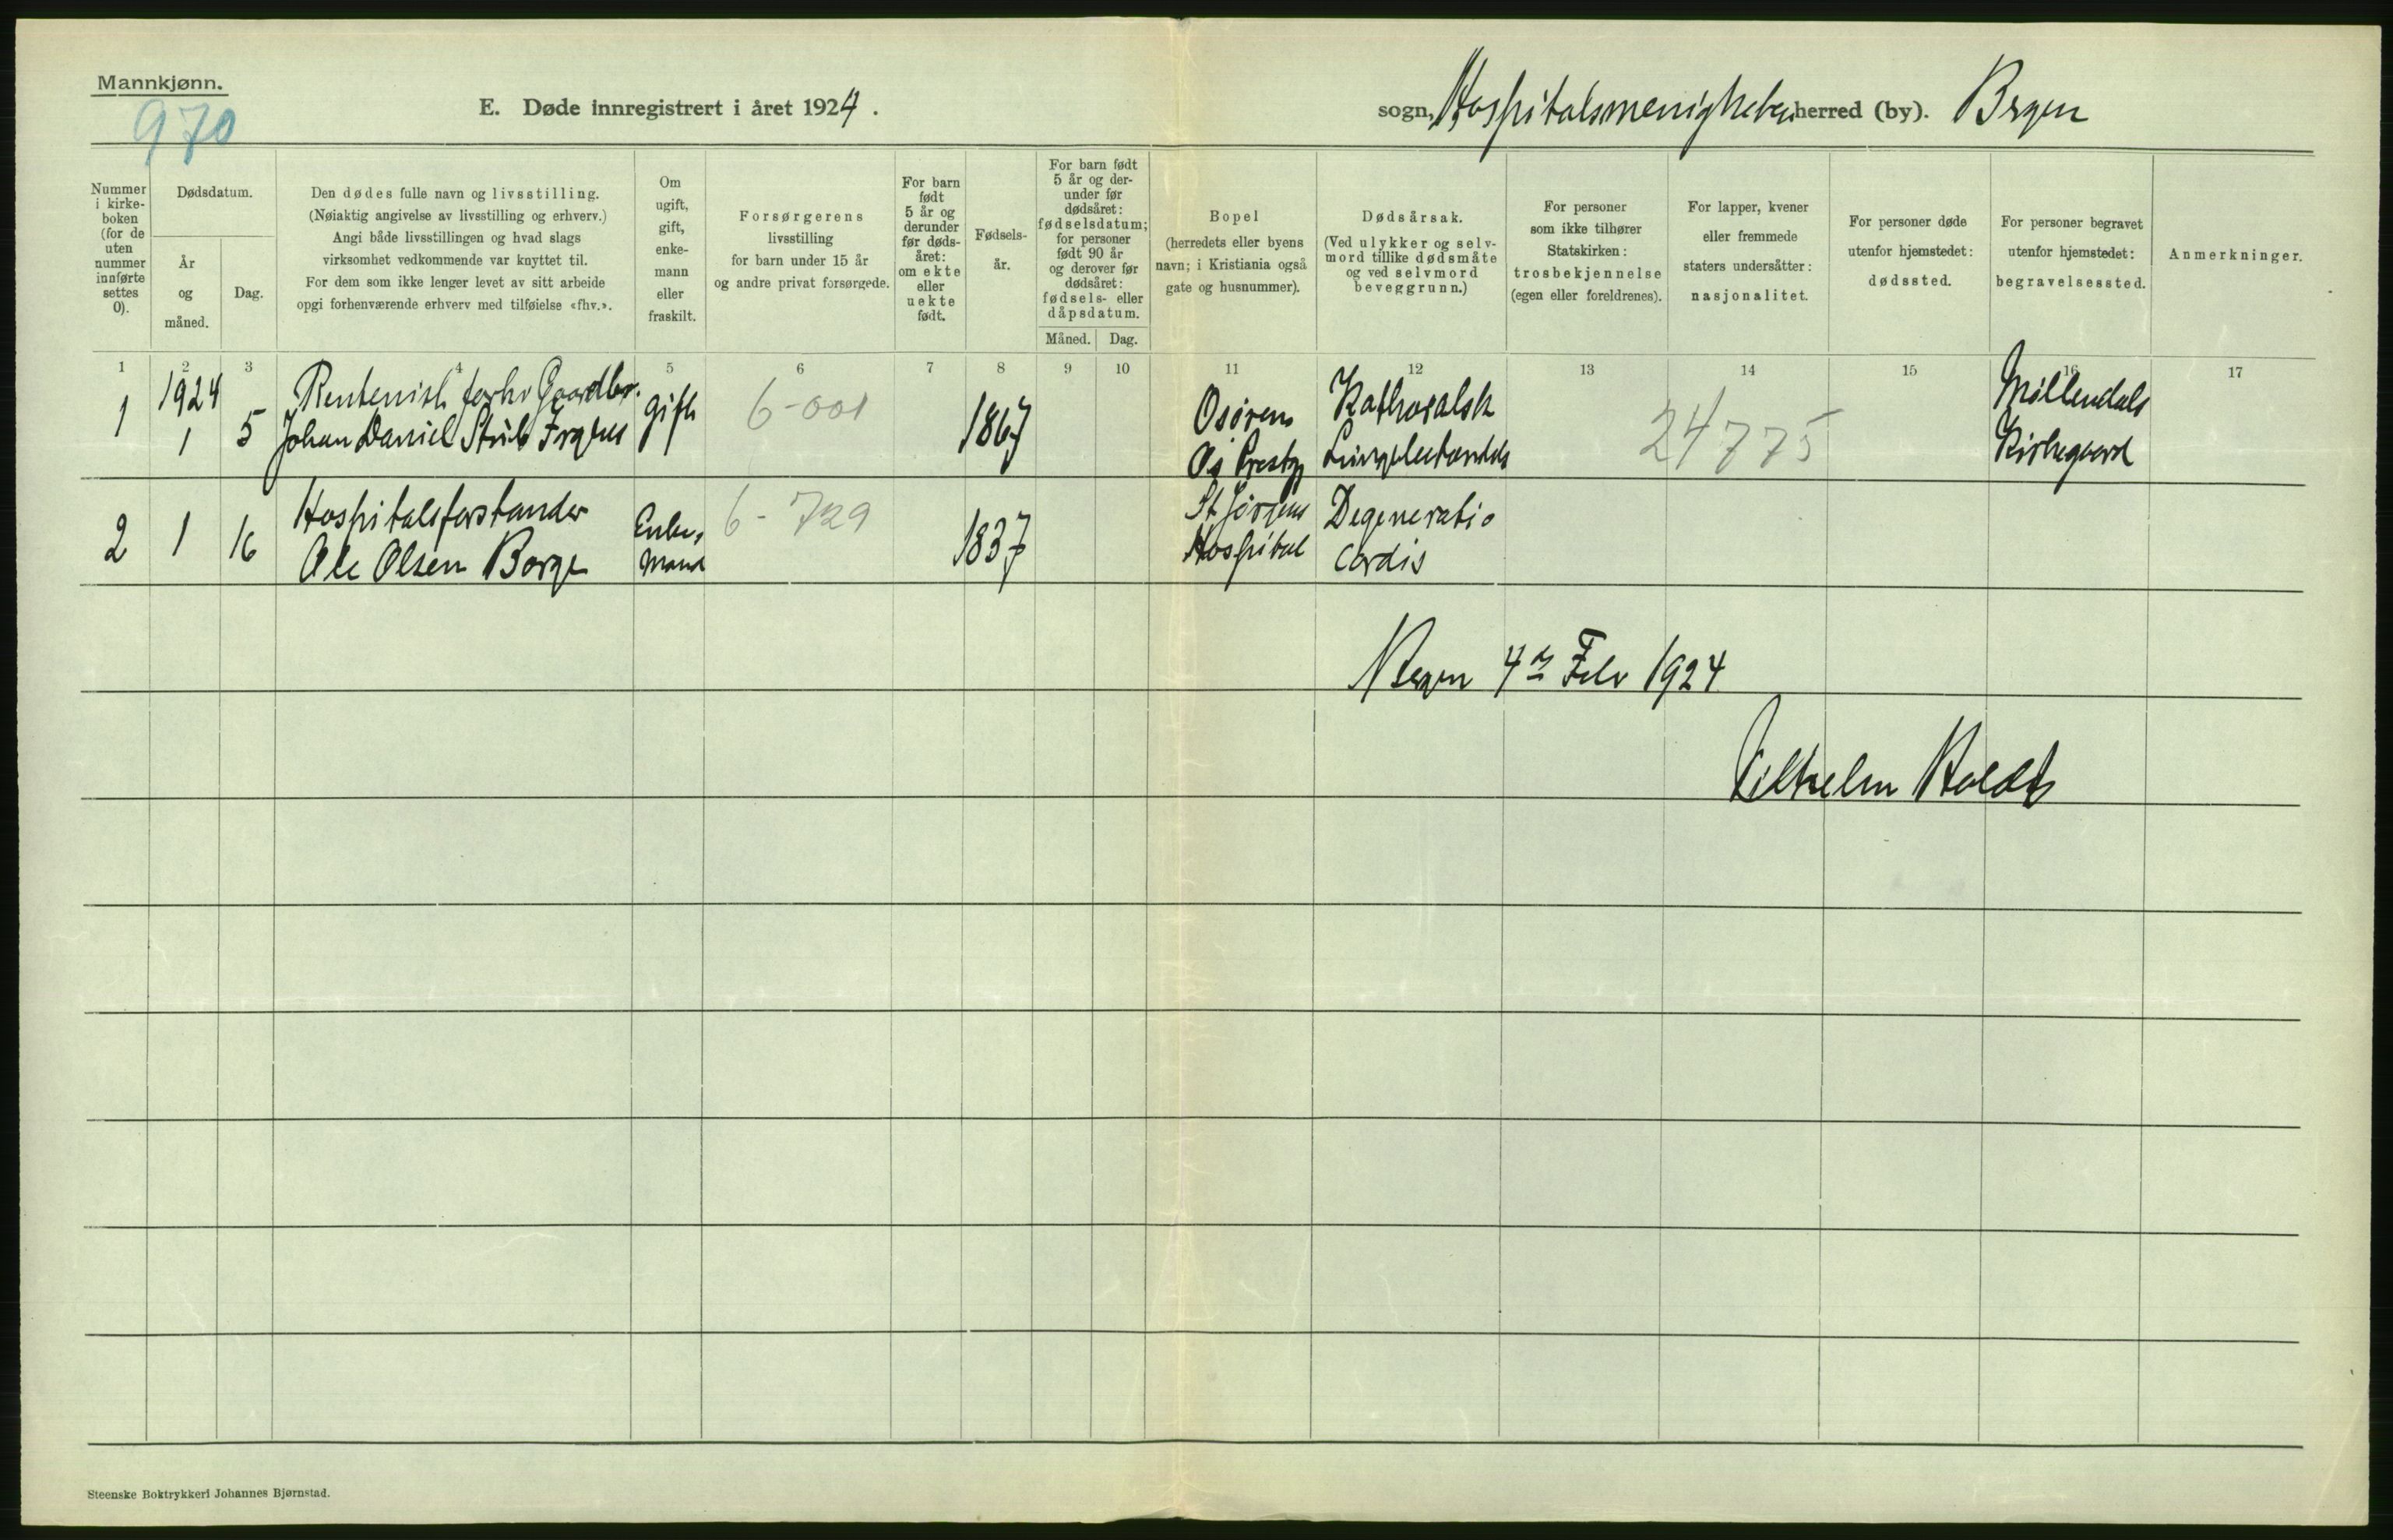 Mannkjønn.
970
E. Døde innregistrert i året 1924.
sogn, Hospitalsmenigheten herred (by). Bergen
Nummer i kirke-boken (for de uten nummer innførte settes 0).
Dødsdatum.
År og måned.
Dag.
Den dødes fulle navn og livsstilling.
(Nøiaktig angivelse av livsstilling og erhverv.)
Angi både livsstillingen og hvad slags
virksomhet vedkommende var knyttet til.
For dem som ikke lenger levet av sitt arbeide
opgi forhenværende erhverv med tilføielse «fhv.».
Om
ugift,
gift,
enke-
mann
eller
fraskilt.
Forsørgerens
livsstilling
for barn under 15 år
og andre privat forsørgede.
For barn
født
5 år og
derunder
før døds-
året:
om ekte
eller
uekte
født.
Fødsels-
år.
For barn født
5 år og der-
under før
dødsåret:
fødselsdatum;
for personer
født 90 år
og derover før
dødsåret:
fødsels- eller
dåpsdatum.
Måned.
Dag.
Bopel
(herredets eller byens
navn; i Kristiania også
gate og husnummer).
Dødsårsak.
(Ved ulykker og selv-
mord tillike dødsmåte
og ved selvmord
beveggrunn.)
For personer
som ikke tilhører
Statskirken:
trosbekjennelse
(egen eller foreldrenes).
For lapper, kvener
eller fremmede
staters undersåtter:
nasjonalitet.
For personer døde
utenfor hjemstedet:
dødssted.
For personer begravet
utenfor hjemstedet:
begravelsessted.
Anmerkninger.
1 2 3 4 5 6 7 8 9 10 11 12 13 14 15 16 17
1 1924 1 5
Johan Daniel
gift 6-001 1867
Osøren
Os Prestgj
Katharalsk
24775
Møllendals
Kirkegaard
2 1 16
Hospitalsforstander
Ole Olsen Borge
Enke,
mand
6-729 1837
St Jørgens
Hospital
Degeneratio
cordis
Bergen 4de Febr 1924
Vilhelm Holdt
Steenske Boktrykkeri Johannes Bjørnstad.